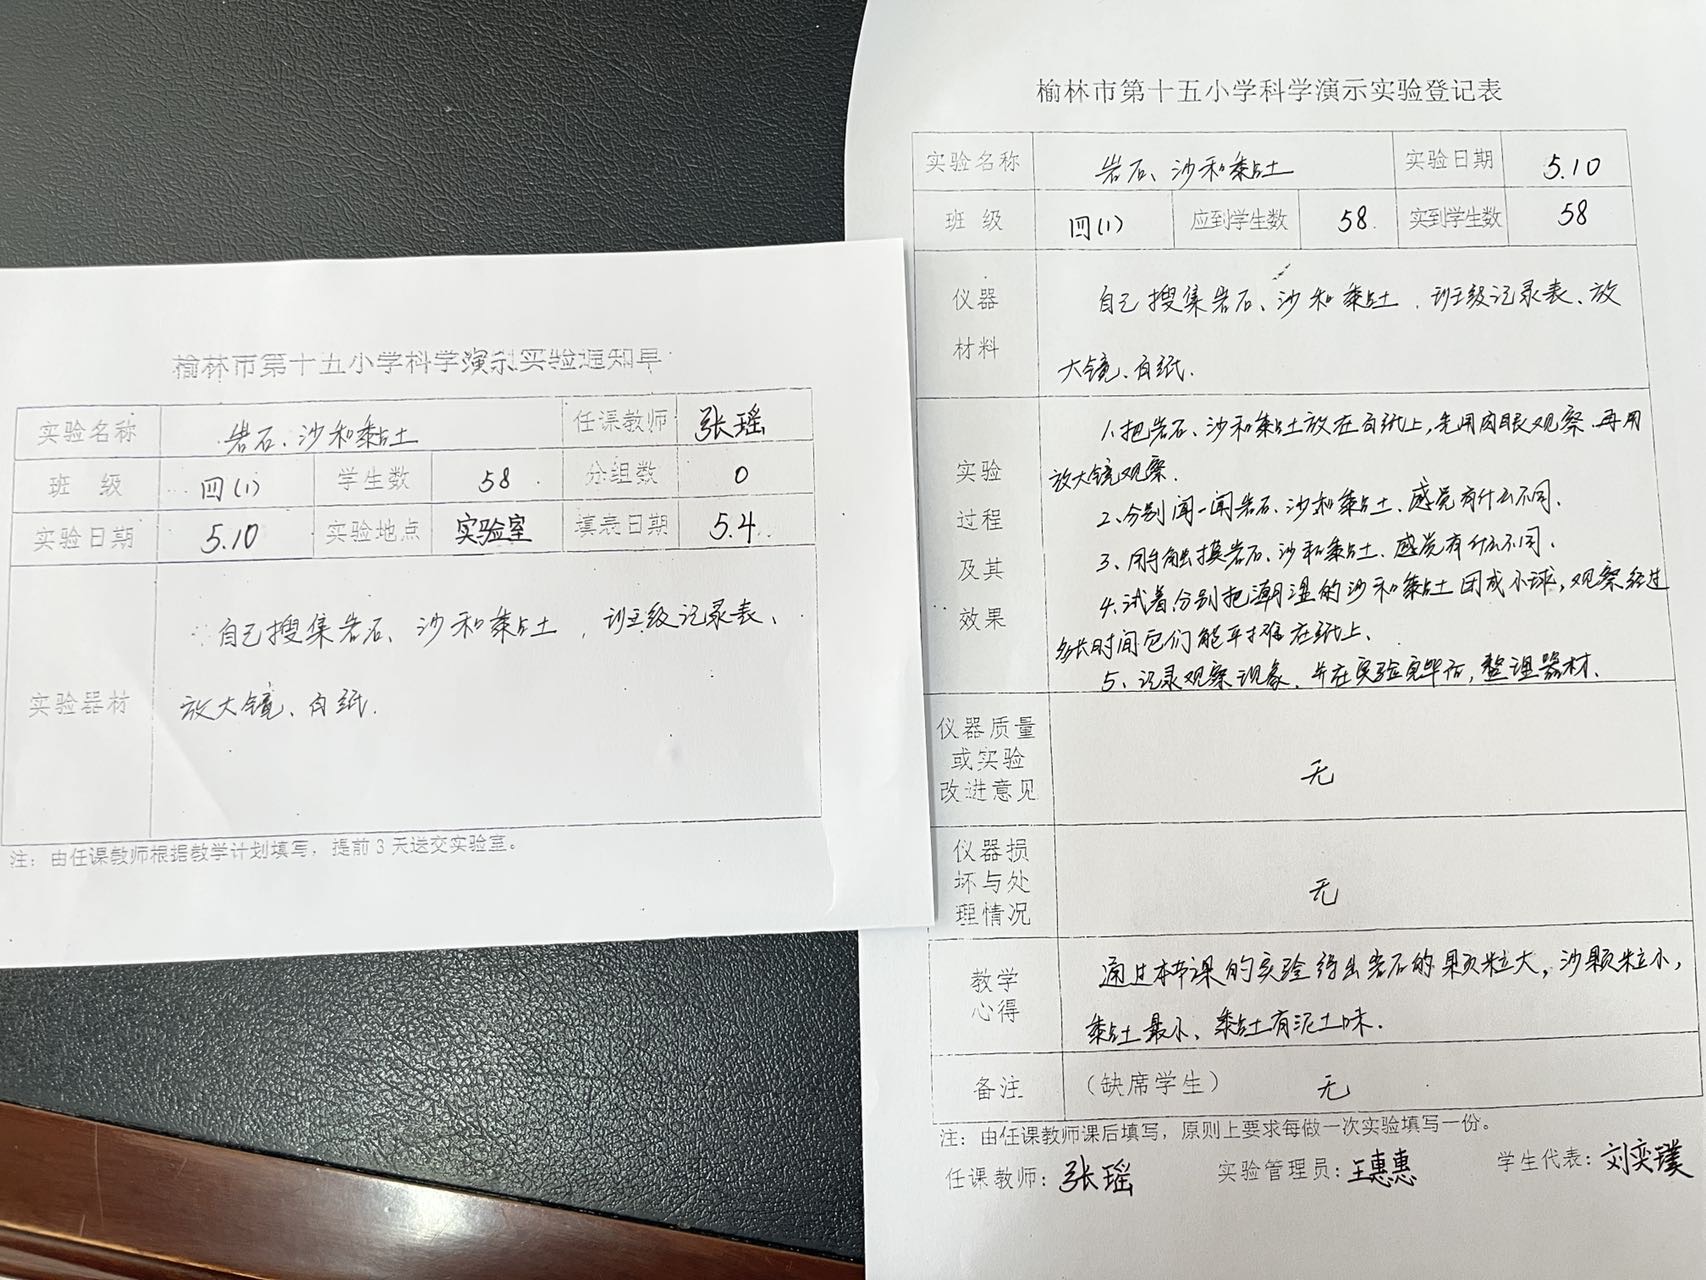 榆林市第十五小学科学演示实验通知单
实验名称 岩石、沙和黏土 任课教师 张瑶
班 级 四(1) 学生数 58 分组数 0
实验日期 5.10 实验地点 实验室 填表日期 5.4
实验器材
自己搜集岩石、沙和黏土,班级记录表、
放大镜、白纸.
注：由任课教师根据教学计划填写，提前3天送交实验室。
榆林市第十五小学科学演示实验登记表
实验名称 岩石、沙和黏土 实验日期 5.10
班 级 四(1) 应到学生数 58 实到学生数 58
仪器
材料
自己搜集岩石、沙和黏土,班级记录表、放
大镜、白纸.
实验
过程
及其
效果
1.把岩石、沙和黏土放在白纸上,先用肉眼观察.再用
放大镜观察.
2、分别闻一闻岩石、沙和黏土、感觉有什么不同.
3、用手触摸岩石、沙和黏土、感觉有什么不同.
4.试着分别把潮湿的沙和黏土团成小球,观察经过
多长时间它们能平摊在纸上、
5、记录观察现象、并在实验完毕后,整理器材.
仪器质量
或实验
改进意见
无
仪器损
坏与处
理情况
无
教学
心得
通过本节课的实验得出岩石的颗粒大,沙颗粒小,
黏土最小、黏土有泥土味.
备注 （缺席学生） 无
注：由任课教师课后填写，原则上要求每做一次实验填写一份。
任课教师：张瑶 实验管理员：王惠惠 学生代表：刘奕璞